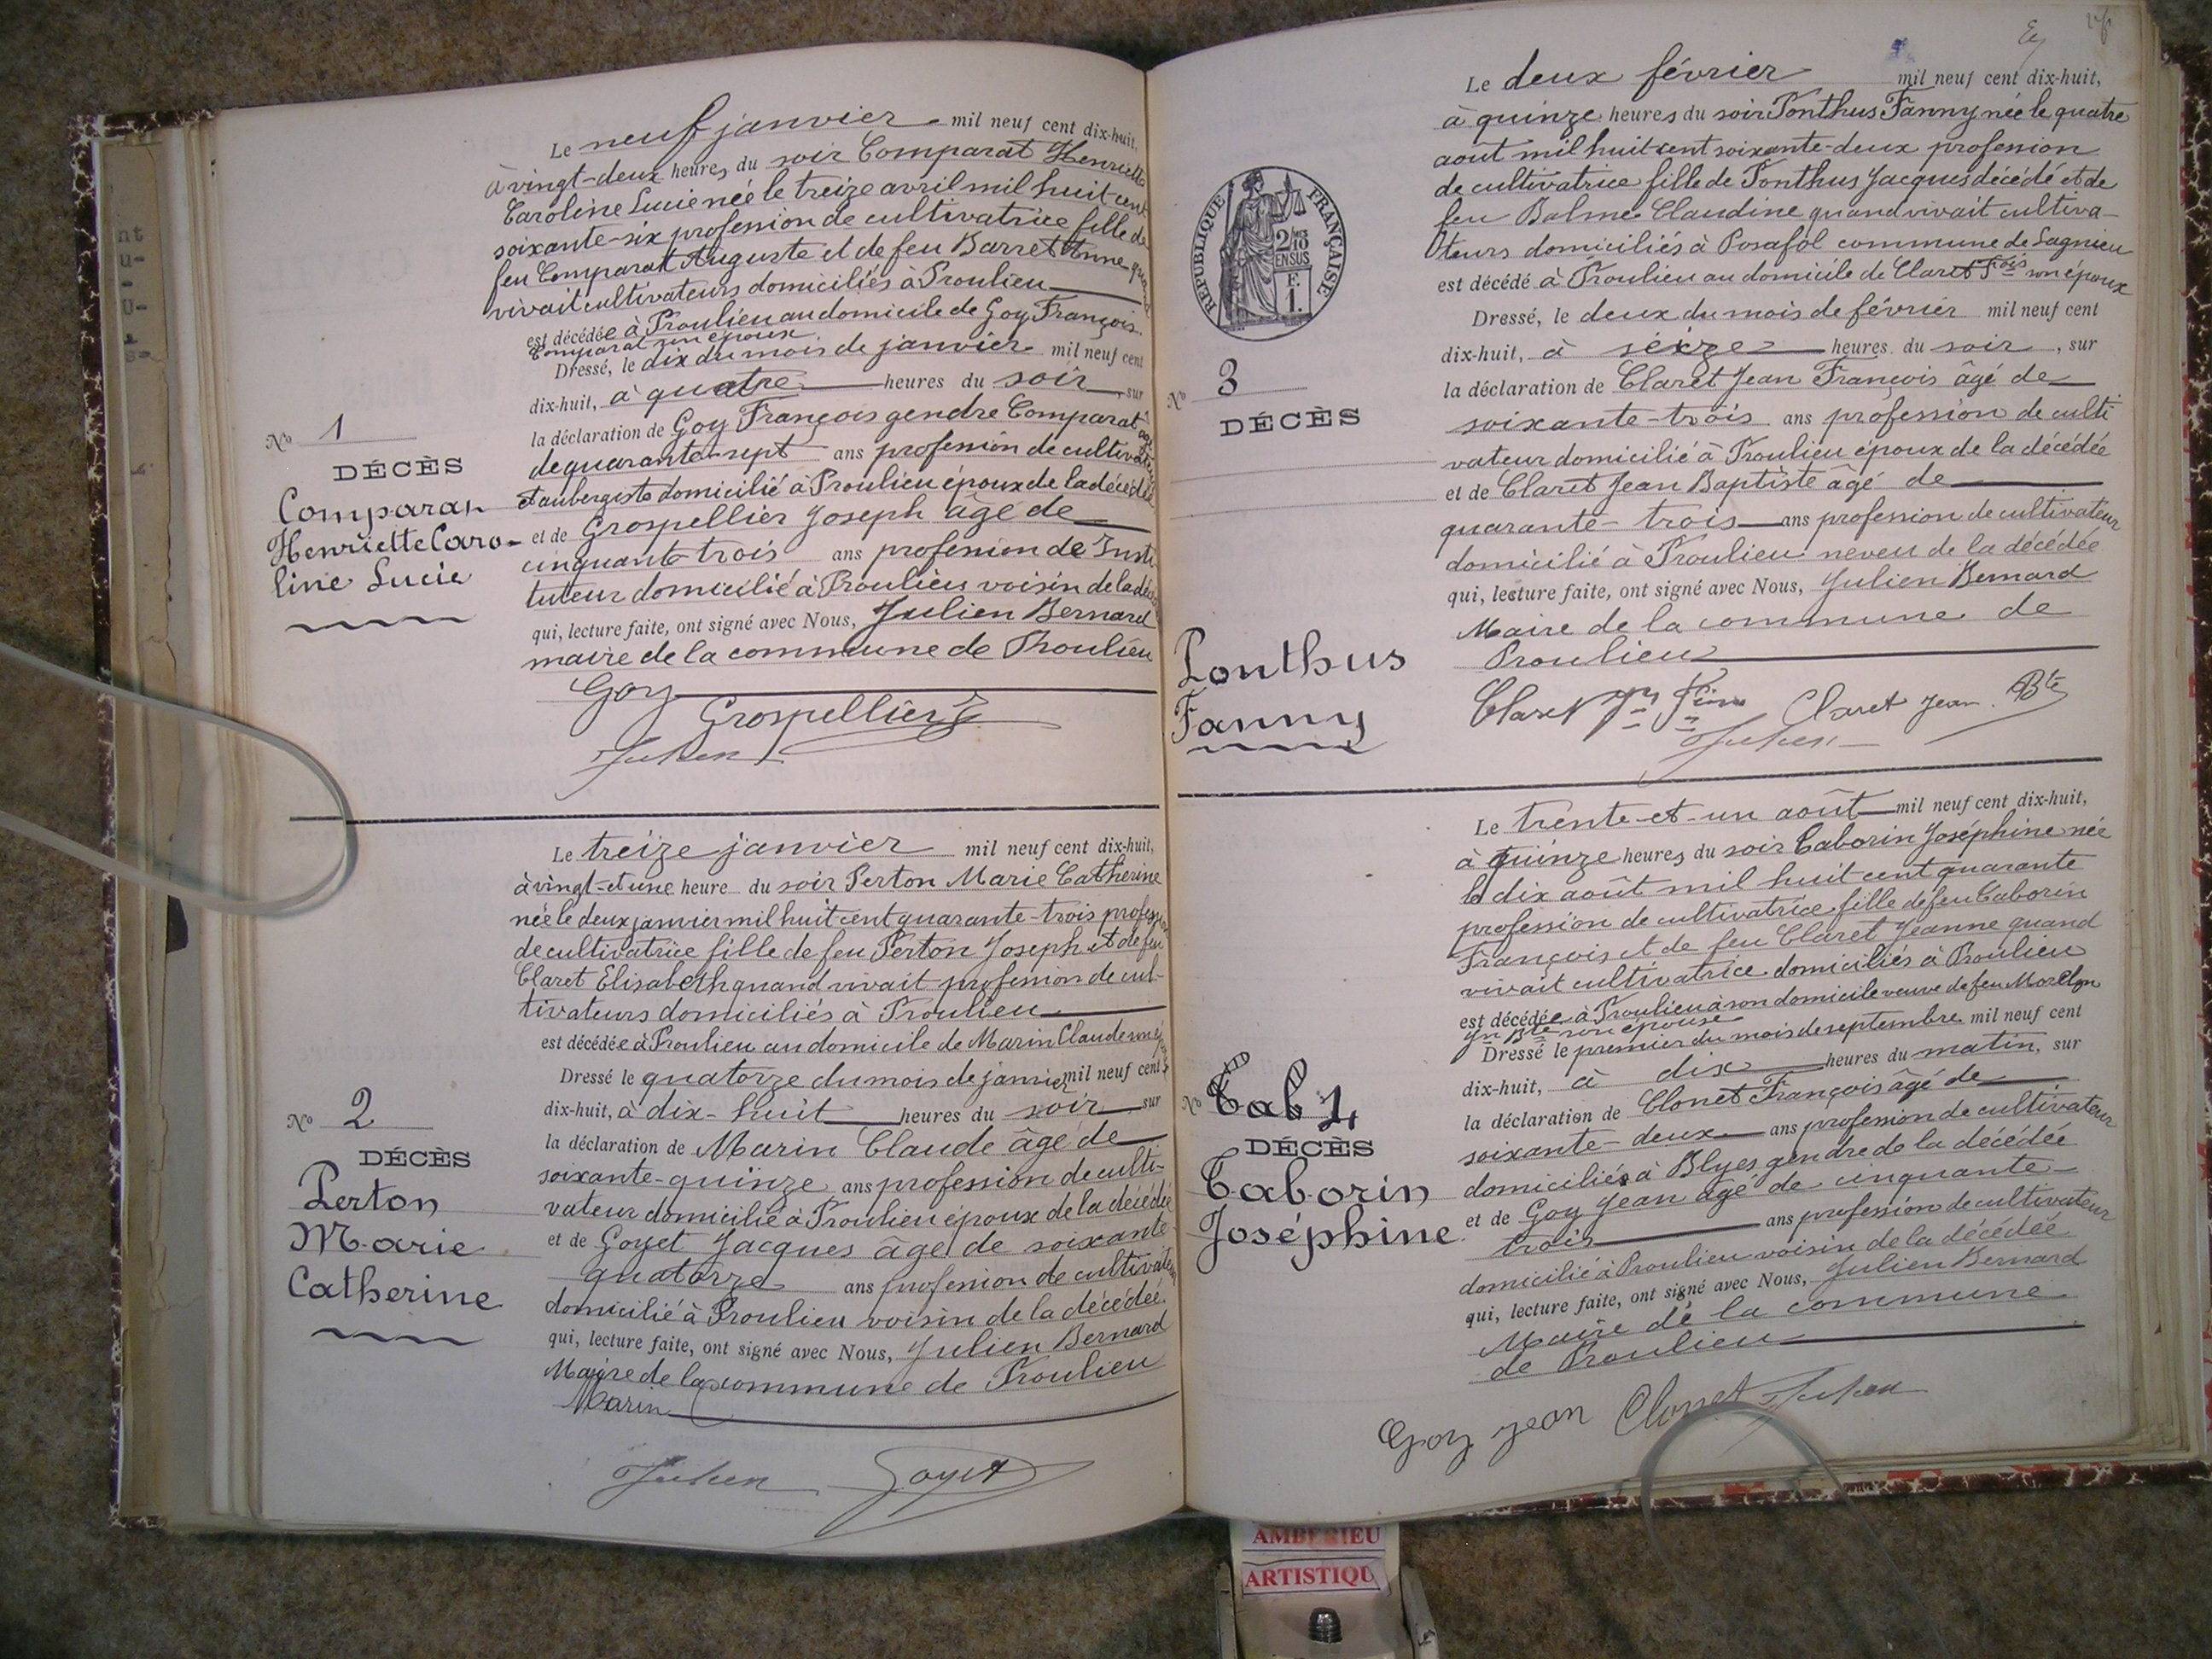 Le neuf janvier mil neuf cent dix-huit,
à vingt-deux heures du soir Comparat Henriette
Caroline Lucie née le treize avril mil huit cent
soixante-six profession de cultivatrice fille de
feu Comparat Auguste et de feu Barret Anne quand
vivait cultivateurs domiciliés à Proulieu
est décédée à Proulieu au domicile de Goy François
Comparat son époux
Dressé, le dix du mois de janvier mil neuf cent
dix-huit, à quatre heures du soir, sur
la déclaration de Goy François gendre Comparat âgé
de quarante-sept ans profession de cultivateur
et aubergiste domicilié à Proulieu époux de la décédée
et de Grospellier Joseph âgé de
cinquante trois ans profession de Insti
tuteur domicilié à Proulieu voisin de la
qui, lecture faite, ont signé avec Nous, Julien Bernard
maire de la commune de Proulieu
Goy
Grospellier
Julien
No 1
DÉCÈS
Comparat
Henriette Caro-
line Lucie
Le treize janvier mil neuf cent dix-huit,
à vingt-et une heure du soir Perton Marie Catherine
née le deux janvier mil huit cent quarante-trois profession
de cultivatrice fille de feu Perton Joseph et de feu
Claret Elisabeth quand vivait profession de cul-
tivateurs domiciliés à Proulieu
est décédée à Proulieu au domicile de Marin Claude son époux
Dressé le quatorze du mois de janvier mil neuf cent
dix-huit, à dix-huit heures du soir sur
la déclaration de Marin Claude âgé de
soixante-quinze ans profession de culti-
vateur domicilié à Proulieu époux de la décédée
et de Goyet Jacques âgé de soixante
quatorze ans profession de cultivateur
domicilié à Proulieu voisin de la décédée
qui, lecture faite, ont signé avec Nous, Julien Bernard
Maire de la commune de Proulieu
Marin
Julien Goyet
No 2
DÉCÈS
Perton
Marie
Catherine
Le deux février mil neuf cent dix-huit,
à quinze heures du soir Ponthus Fanny née le quatre
août mil huit cent soixante-deux profession
de cultivatrice fille de Ponthus Jacques décédé et de
feu Balme Claudine quand vivait cultiva-
teurs domiciliés à Posafol commune de Lagnieu
est décédé à Proulieu au domicile de Claret Fois son époux
Dressé, le deux du mois de février mil neuf cent
dix-huit, à seize heures du soir, sur
la déclaration de Claret Jean François âgé de
soixante-trois ans profession de culti
vateur domicilié à Proulieu époux de la décédée
et de Claret Jean Baptiste âgé de
quarante-trois ans profession de cultivateur
domicilié à Proulieu neveu de la décédée
qui, lecture faite, ont signé avec Nous, Julien Bernard
Maire de la commune de
Proulieu
Claret Claret Jean Bte
Julien
RÉPUBLIQUE FRANÇAISE
2/10
EN SUS
F.
1.
No 3
DÉCÈS
Ponthus
Fanny
Le trente-et-un août mil neuf cent dix-huit,
à quinze heures du soir Caborin Joséphine née
le dix août mil huit cent quarante
profession de cultivatrice fille de feu Caborin
François et de feu Claret Jeanne quand
vivait cultivatrice domiciliés à Proulieu
est décédée à Proulieu à son domicile veuve de feu Morelon
Jn Bte son épouse
Dressé le premier du mois de septembre mil neuf cent
dix-huit, à dix heures du matin, sur
la déclaration de Clonet François âgé de
soixante-deux ans profession de cultivateur
domiciliés à Blyes gendre de la décédée
et de Goy Jean âgé de cinquante-
trois ans profession de cultivateur
domicilié à Proulieu voisin de la décédée
qui, lecture faite, ont signé avec Nous, Julien Bernard
Maire de la commune
de Proulieu
Goy Jean Clonet Julien
No Cab 4
DÉCÈS
Caborin
Joséphine
AMBERIEU
ARTISTIQU